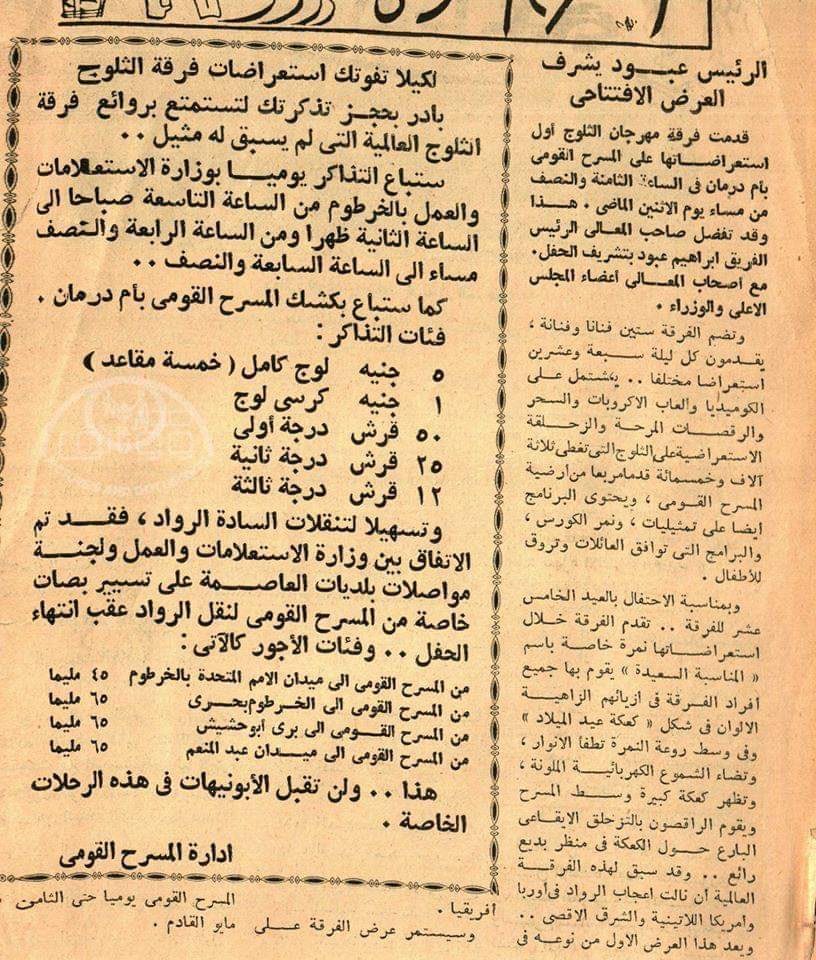 الرئيس عبود يشرف
العرض الافتتاحى
قدمت فرقة مهرجان الثلوج أول
استعراضاتها على المسرح القومى
بام درمان فى الساعة الثامنة والنصف
من مساء يوم الاثنين الماضى . هذا
وقد تفضل صاحب المعالى الرئيس
الفريق ابراهيم عبود بتشريف الحفل.
مع أصحاب المعالى أعضاء المجلس
الاعلى والوزراء .
وتضم الفرقة ستين فنانا وفنانة ،
يقدمون كل ليلة سبعة وعشرين
استعراضا مختلفا .. يشتمل على
الكوميديا والعاب الاكروبات والسحر
والرقصات المرحة والزحلقة
الاستعراضية على الثلوج التى تغطى ثلاثة
آلاف وخمسمائة قدما مربعا من ارضية
المسرح القومى ، ويحتوى البرنامج
ايضا على تمثيليات ، ونمر الكورس ،
والبرامج التى توافق العائلات وتروق
للأطفال .
وبمناسبة الاحتفال بالعيد الخامس
عشر للفرقة .. تقدم الفرقة خلال
استعراضاتها نمرة خاصة باسم
« المناسبة السعيدة » يقوم بها جميع
أفراد الفرقة فى ازيائهم الزاهية
الالوان فى شكل « كعكة عيد الميلاد »
وفى وسط روعة النمرة تطفأ الانوار ،
وتضاء الشموع الكهربائية الملونة ،
وتظهر كعكة كبيرة وسط المسرح
ويقوم الراقصون بالتزحلق الايقاعى
البارع حول الكعكة فى منظر بديع
رائع .. وقد سبق لهذه الفرقة
العالمية أن نالت اعجاب الرواد فى أوربا
وامريكا اللاتينية والشرق الاقصى ..
ويعد هذا العرض الاول من نوعه فى
أفريقيا .
وسيستمر عرض الفرقة على
المسرح القومى يوميا حتى الثامن
مايو القادم .
لكيلا تفوتك استعراضات فرقة الثلوج
بادر بحجز تذكرتك لتستمتع بروائع فرقة
الثلوج العالمية التى لم يسبق له مثيل ..
ستباع التذاكر يوميا بوزارة الاستعلامات
والعمل بالخرطوم من الساعة التاسعة صباحا الى
الساعة الثانية ظهرا ومن الساعة الرابعة والنصف
مساء الى الساعة السابعة والنصف ..
كما ستباع بكشك المسرح القومى بأم درمان .
فئات التذاكر :
٥ جنيه لوج كامل ( خمسة مقاعد )
١ جنيه كرسى لوج
٥٠ قرش درجة أولى
٢٥ قرش درجة ثانية
١٢ قرش درجة ثالثة
وتسهيلا لتنقلات السادة الرواد ، فقد تم
الاتفاق بين وزارة الاستعلامات والعمل ولجنة
مواصلات بلديات العاصمة على تسيير بصات
خاصة من المسرح القومى لنقل الرواد عقب انتهاء
الحفل .. وفئات الأجور كالآتى :
من المسرح القومى الى ميدان الامم المتحدة بالخرطوم ٤٥ مليما
من المسرح القومى الى الخرطوم بحرى ٦٥ مليما
من المسرح القومى الى برى ابوحشيش ٦٥ مليما
من المسرح القومى الى ميدان عبد المنعم ٦٥ مليما
هذا .. ولن تقبل الأبونيهات فى هذه الرحلات
الخاصة .
ادارة المسرح القومى